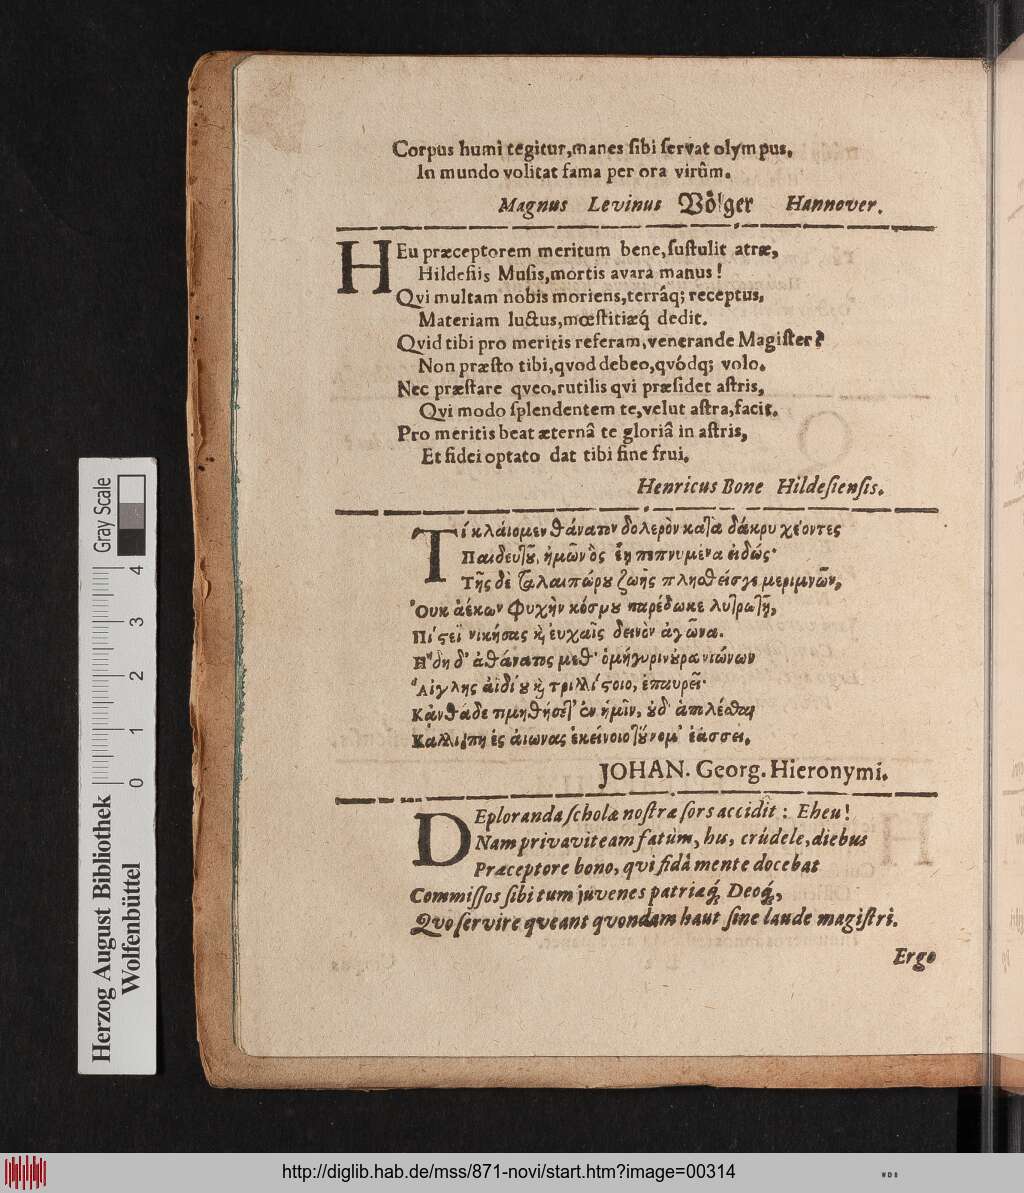 Corpus humi tegitur, manes sibi servat olympus,
In mundo volitat fama per ora virûm.
Magnus Levinus Völger Hannover.
HEu præceptorem meritum bene, sustulit atræ,
Hildesiis Musis, mortis avara manus!
Qvi multam nobis moriens, terráq; receptus,
Materiam luctus, mœstitiæq́ dedit.
Qvid tibi pro meritis referam, venerande Magister?
Non præsto tibi, qvod debeo, qvódq; volo.
Nec præstare qveo, rutilis qvi præsidet astris,
Qvi modo splendentem te, velut astra, facit.
Pro meritis beat æternâ te gloriâ in astris,
Et fidei optato dat tibi fine frui.
Henricus Bone Hildesiensis.
Τί κλάιομεν θάνατον δολερὸν κατα δάκρυ χέοντες
Παιδευτοῦ, ἡμῶν ὃς ἔη πεπνυμένα ἐιδώς·
Τῆς δὲ ταλαιπώρου ζωῆς πλησθείσγε μεριμνῶν,
Ὀυκ ἀέκων ψυχὴν κόσμου παρέδωκε λυτρωτῇ,
Πίςεϊ νικήσας κὶ ἐυχαῖς δεινὸν ἀγῶνα.
Ηδη δ' ἀθάνατος μεθ' ὁμήγυριν
Αἴγλης ἀϊδίου κὶ τριλλίςοιο, ἐπαυρεῖ·
Κἀνθάδε τιμηθήσετ' ἐν ἡμῖν, ουδ'
ἐς ἀιωνας ἐκεινοιο τοὔνομ' ἐάσσει.
JOHAN. Georg. Hieronymi.
DEploranda scholæ nostræ sors accidit: Eheu!
Nam privavit eam fatùm, hu, crúdele, diebus
Præceptore bono, qvi fidâ mente docebat
Commissos sibi tum juvenes patriæq́, Deoq́,
Qvo servire qveant qvondam haut sine laude magistri.
Ergo
Herzog August Bibliothek
Wolfenbüttel
Gray Scale
0 1 2 3 4
http://diglib.hab.de/mss/871-novi/start.htm?image=00314
WDB